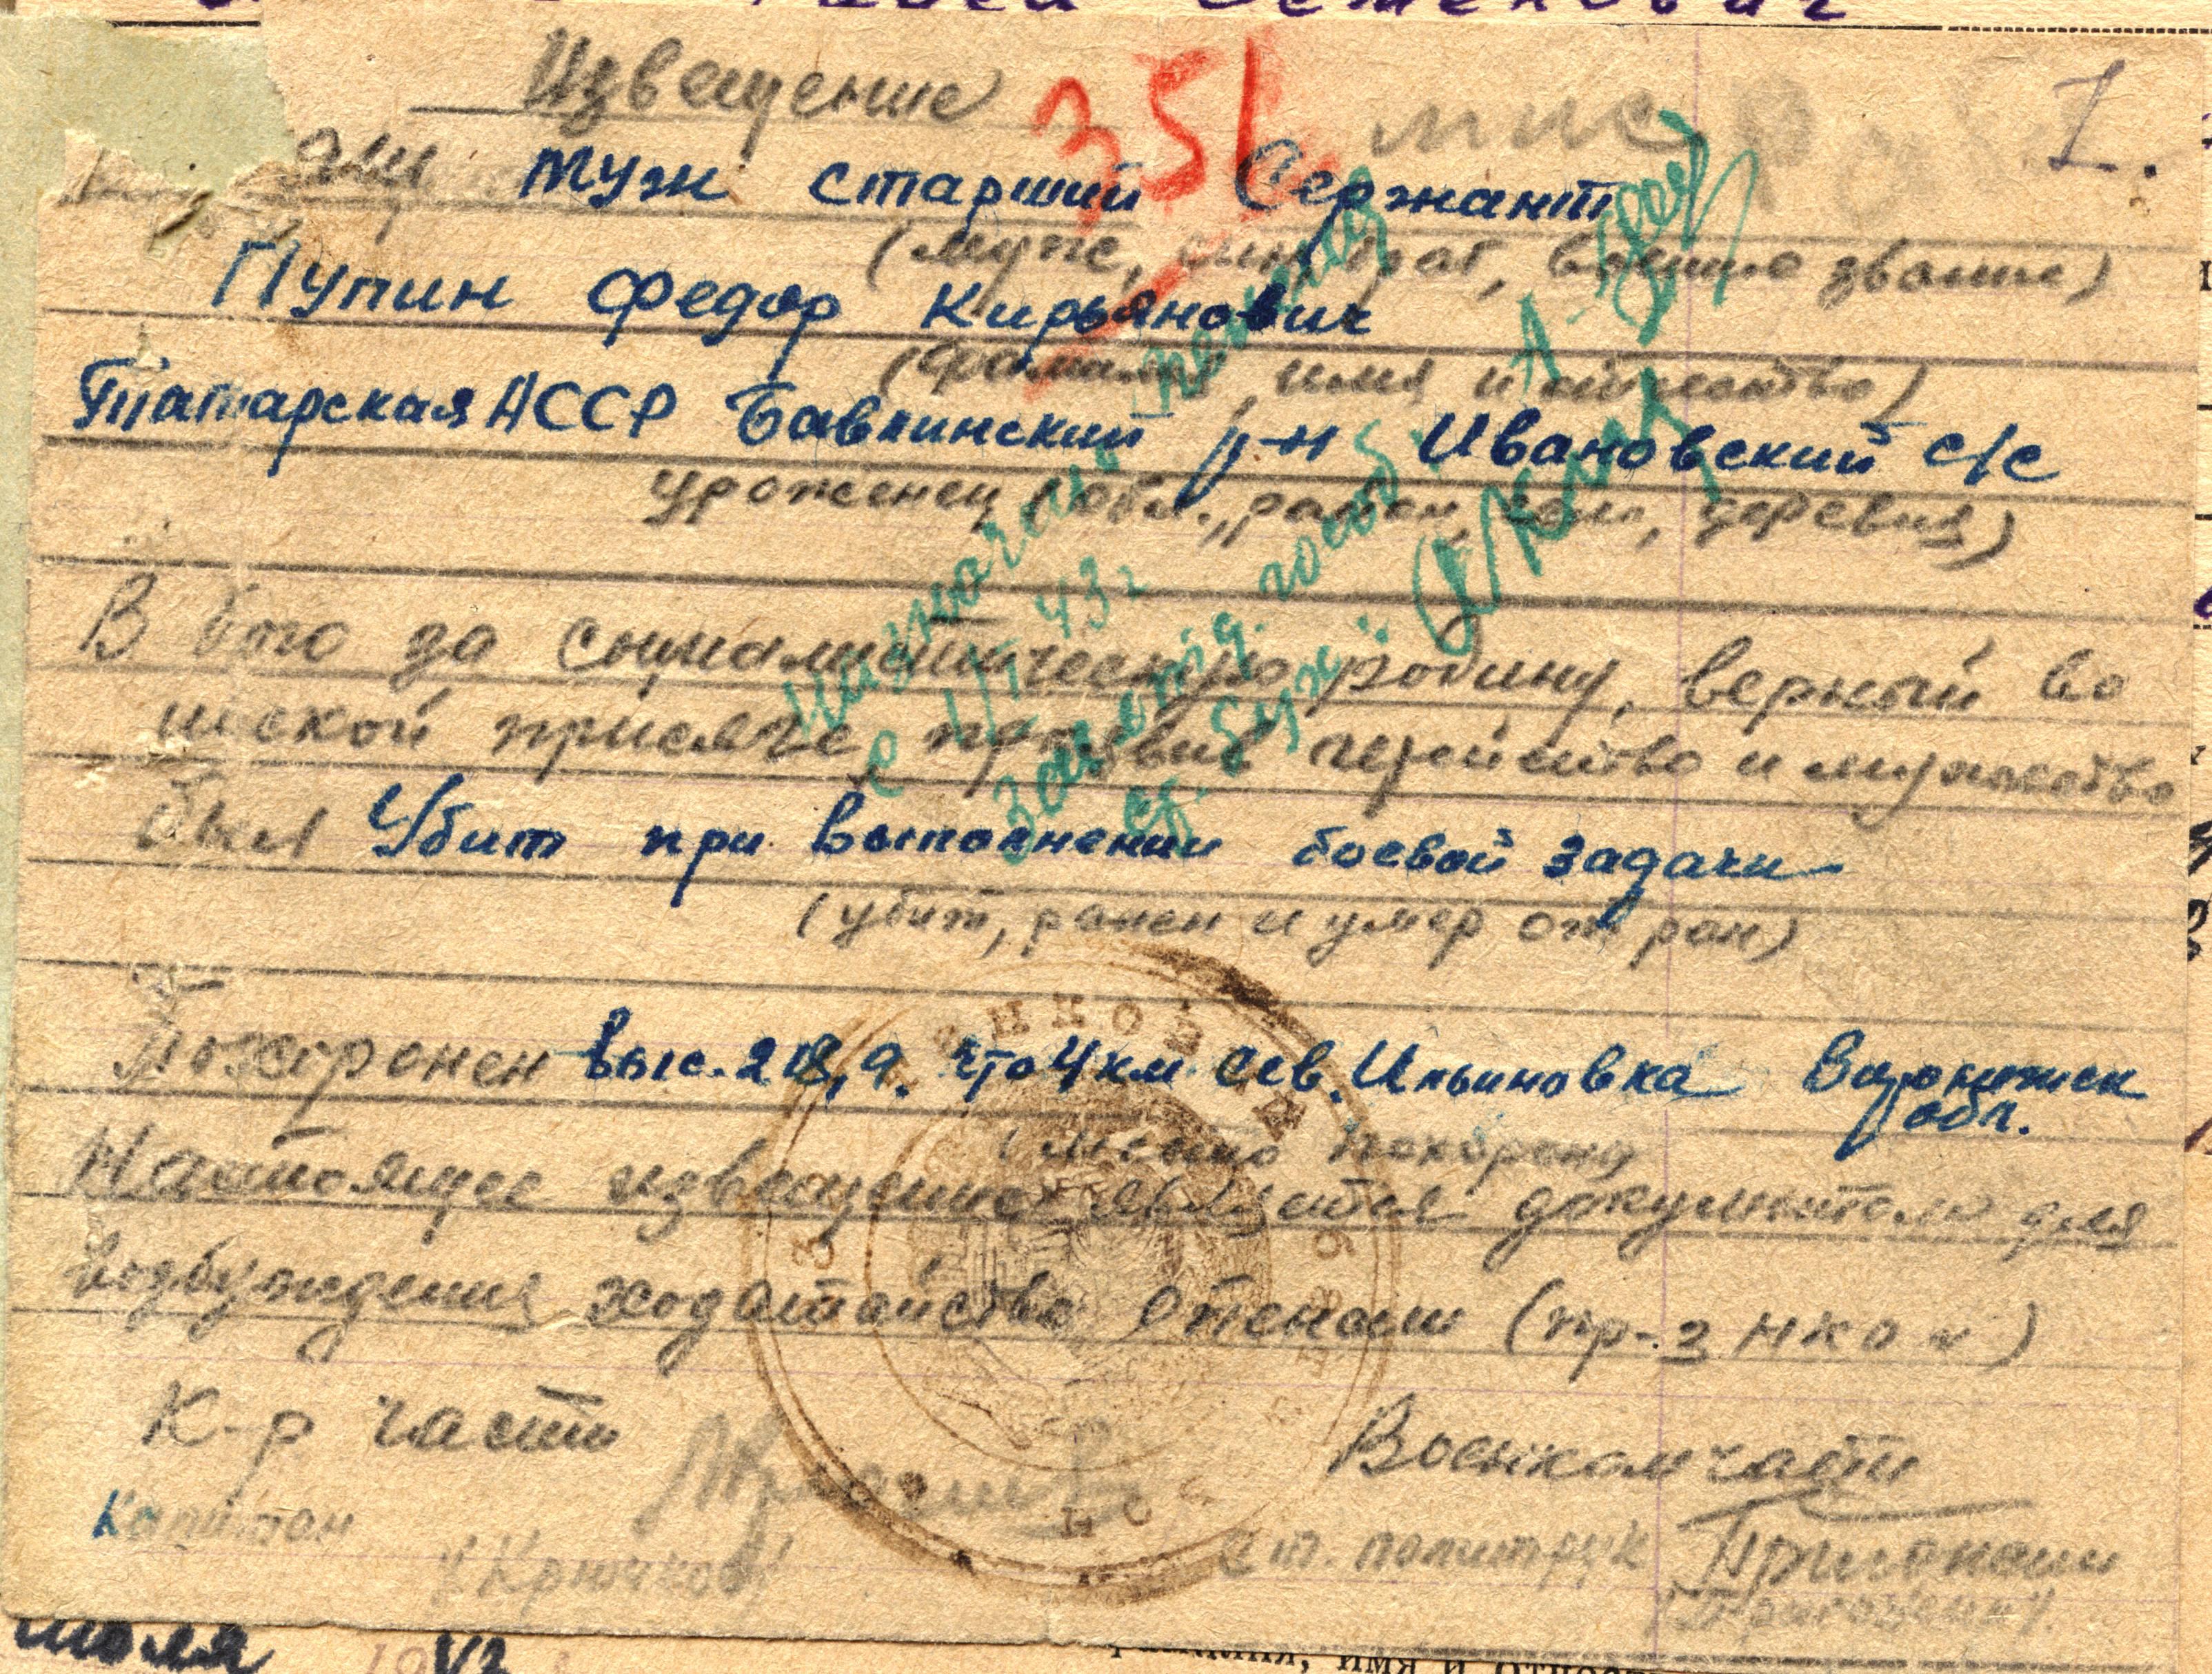 Семенович
Извещение
351
1.
муж старший Сержант
(муж, сын, брат, воинское звание)
Пупин Федор Кирьянович
(фамилия, имя и отчество)
Татарская АССР Бавлинский р-н Ивановский с/с
уроженец (обл., район, село, деревня)
В бою за социалистическую родину, верный во
инской присяге, проявив геройство и мужество
был Убит при выполнении боевой задачи
(убит, ранен и умер от ран)
Похоронен выс. 218,9. что 4 км. Сев. Ильиновка Воронежск
обл.
(место похорон)
Настоящее извещение является документом для
возбуждения ходатайства о пенсии (пр-з НКО №)
К-р части
Военком части
Капитан
/Крючков/
Ст. политрук
Назначена пенсия
с 1/I 43 г
июля 1942
имя и отчество